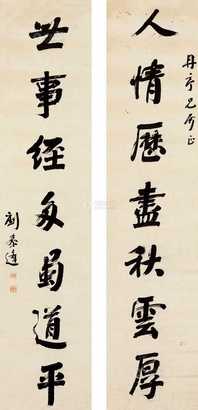 丹亭兄斧正
人情歷盡秋雲厚
世事經多蜀道平
劉春霖